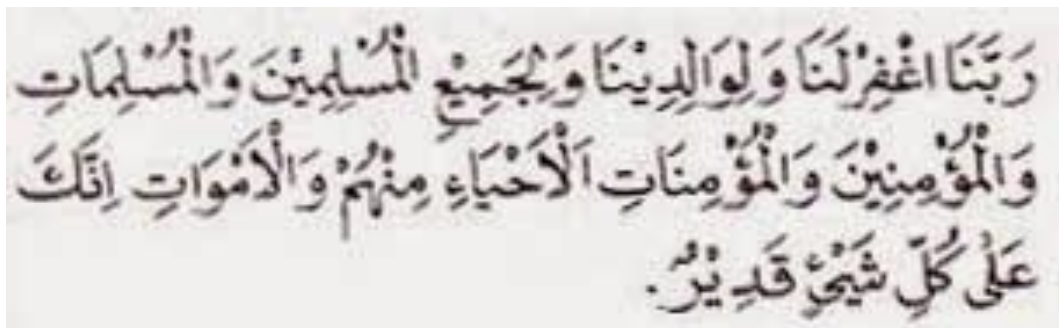 رَبَّنَا اغْفِرْلَنَا وَلِوَالِدِيْنَا وَلِجَمِيْعِ الْمُسْلِمِيْنَ وَالْمُسْلِمَاتِ
وَالْمُؤْمِنِيْنَ وَالْمُؤْمِنَاتِ اَلْاَحْيَاءِ مِنْهُمْ وَالْاَمْوَاتِ اِنَّكَ
عَلٰى كُلِّ شَيْئٍ قَدِيْرٌ.